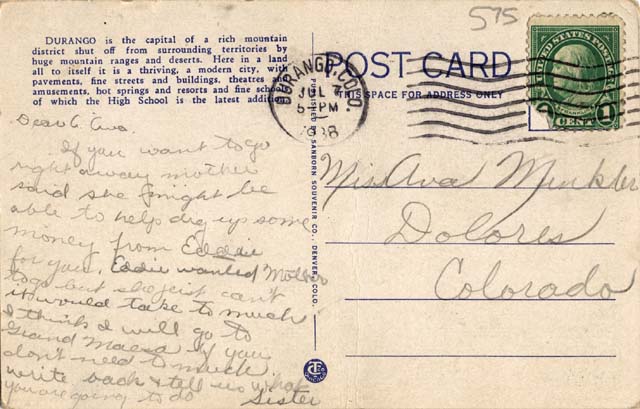 575
DURANGO is the capital of a rich mountain
district shut off from surrounding territories by
huge mountain ranges and deserts. Here in a land
all to itself it is a thriving, a modern city, with
pavements, fine streets and buildings, theatres and
amusements, hot springs and resorts and fine schools
of which the High School is the latest addition
POST CARD
THIS SPACE FOR ADDRESS ONLY
DURANGO, COLO.
JUL 7
5-PM
1938
UNITED STATES POSTAGE
1 CENT 1
Dear Ava.
If you want to go
right away mother
said she might be
able to help dig up some
money from Eddie
for you. Eddie wanted Mother
to go but she jest can't
it would take to much
I think I will go to
Grand if you
don't need to much
write back & tell us what
you are going to do
Sister
PUBLISHED BY SANBORN SOUVENIR CO., DENVER, COLO.
Miss Ava Minkler
Dolores
Colorado